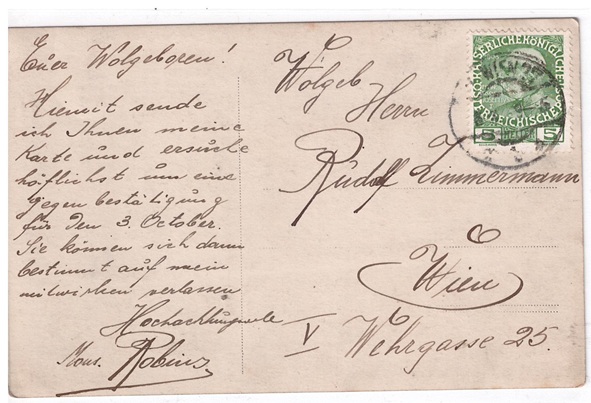 Euer Wolgeboren!
Hiemit sende
ich Ihnen meine
Karte und ersuche
höflichst um eine
gegen bestätigung
für den 3. October.
Sie können sich dann
bestimmt auf mein
mitwirken verlassen
Hochachtungsvole
Mons. Robins
Wolgeb
Herrn
Rudolf Zimmermann
Wien
V Wehrgasse 25.
KAISERLICHEKÖNIGLICHE
ÖSTERREICHISCHE
5 5